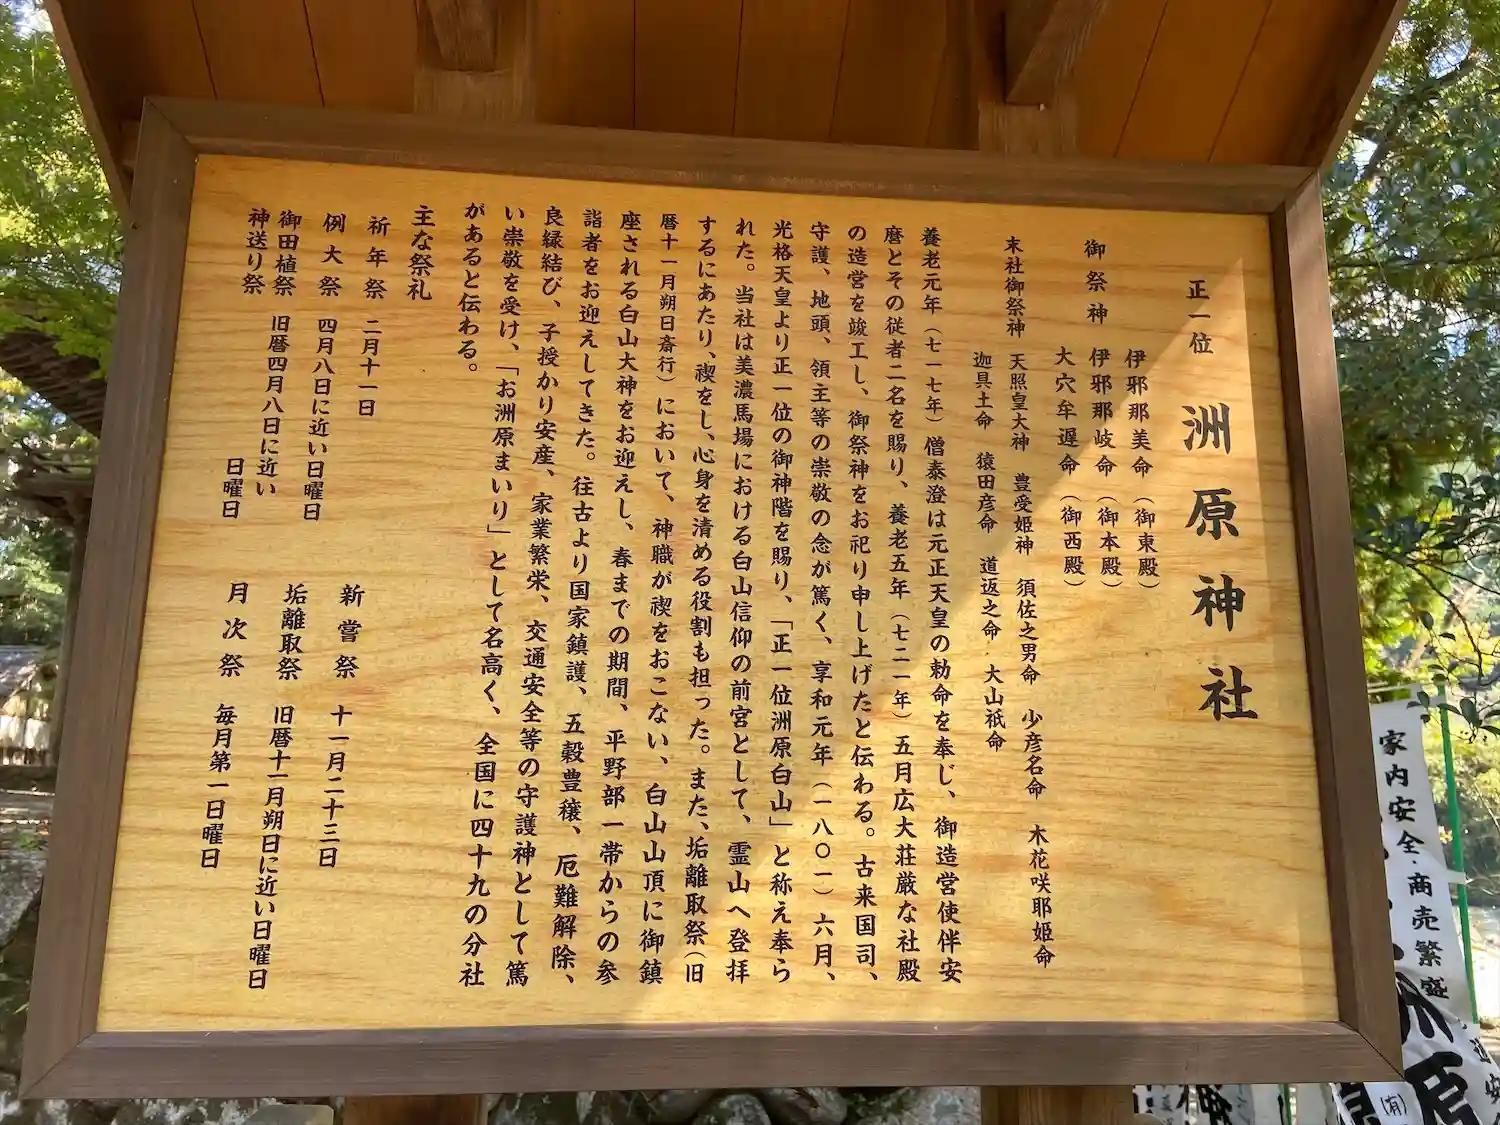 正一位 洲原神社
御祭神
伊邪那美命（御東殿）
伊邪那岐命（御本殿）
大穴牟遅命（御西殿）
末社御祭神 天照皇大神 豊受姫神 須佐之男命 少彦名命 木花咲耶姫命
迦具土命 猿田彦命 道返之命 大山祇命
養老元年（七一七年）僧泰澄は元正天皇の勅命を奉じ、御造営使伴安
麿とその従者二名を賜り、養老五年（七二一年）五月広大荘厳な社殿
の造営を竣工し、御祭神をお祀り申し上げたと伝わる。古来国司、
守護、地頭、領主等の崇敬の念が篤く、享和元年（一八〇一）六月、
光格天皇より正一位の御神階を賜り、「正一位洲原白山」と称え奉ら
れた。当社は美濃馬場における白山信仰の前宮として、霊山へ登拝
するにあたり、禊をし、心身を清める役割も担った。また、垢離取祭（旧
暦十一月朔日斎行）において、神職が禊をおこない、白山山頂に御鎮
座される白山大神をお迎えし、春までの期間、平野部一帯からの参
詣者をお迎えしてきた。往古より国家鎮護、五穀豊穣、厄難解除、
良縁結び、子授かり安産、家業繁栄、交通安全等の守護神として篤
い崇敬を受け、「お洲原まいり」として名高く、全国に四十九の分社
があると伝わる。
主な祭礼
祈年祭 二月十一日
例大祭 四月八日に近い日曜日
御田植祭 旧暦四月八日に近い
神送り祭 日曜日
新嘗祭 十一月二十三日
垢離取祭 旧暦十一月朔日に近い日曜日
月次祭 毎月第一日曜日
家内安全・商売繁盛
洲原
原
（有）